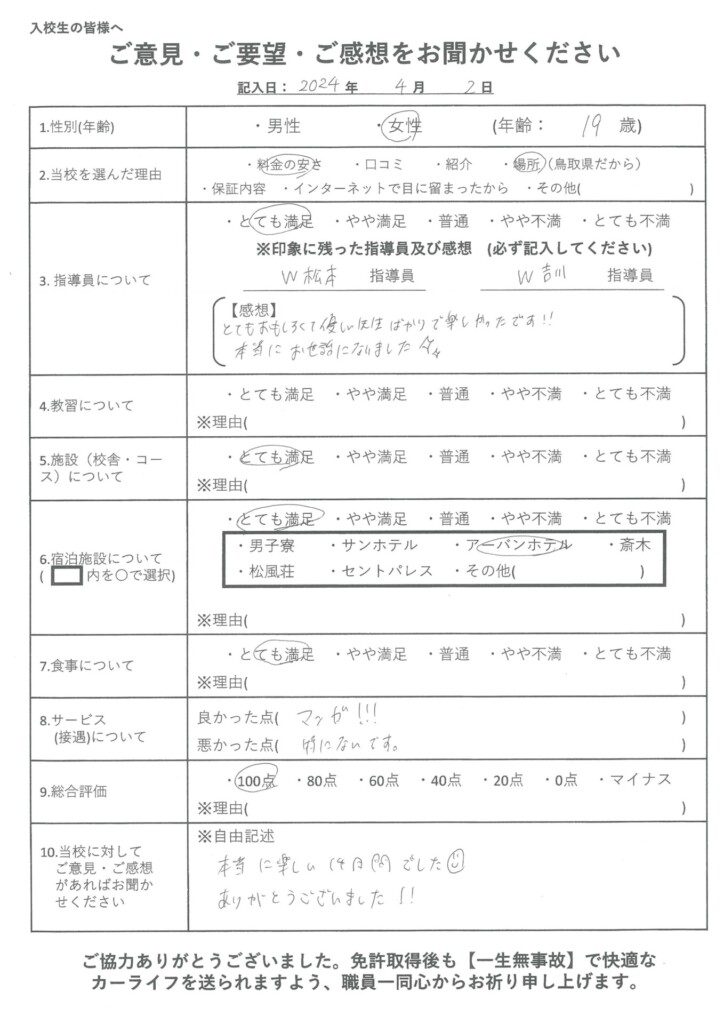 入校生の皆様へ
ご意見・ご要望・ご感想をお聞かせください
記入日： 2024 年 4 月 2 日
1.性別(年齢) ・男性 ・女性 (年齢： 19 歳)
2.当校を選んだ理由 ・料金の安さ ・口コミ ・紹介 ・場所(鳥取県だから)
・保証内容 ・インターネットで目に留まったから ・その他( )
3. 指導員について ・とても満足 ・やや満足 ・普通 ・やや不満 ・とても不満
※印象に残った指導員及び感想 (必ず記入してください)
W松本 指導員 W吉川 指導員
【感想】
とてもおもしろくて優しい先生ばかりで楽しかったです!!
本当にお世話になりました
4.教習について ・とても満足 ・やや満足 ・普通 ・やや不満 ・とても不満
※理由( )
5.施設（校舎・コース）について ・とても満足 ・やや満足 ・普通 ・やや不満 ・とても不満
※理由( )
6.宿泊施設について ・とても満足 ・やや満足 ・普通 ・やや不満 ・とても不満
( 内を○で選択) ・男子寮 ・サンホテル ・アーバンホテル ・斎木
・松風荘 ・セントパレス ・その他( )
※理由( )
7.食事について ・とても満足 ・やや満足 ・普通 ・やや不満 ・とても不満
※理由( )
8.サービス(接遇)について 良かった点( マンガ!!! )
悪かった点( 特にないです。 )
9.総合評価 ・100点 ・80点 ・60点 ・40点 ・20点 ・0点 ・マイナス
※理由( )
10.当校に対して
ご意見・ご感想
があればお聞か
せください
※自由記述
本当に楽しい14日間でした
ありがとうございました!!
ご協力ありがとうございました。免許取得後も【一生無事故】で快適な
カーライフを送られますよう、職員一同心からお祈り申し上げます。